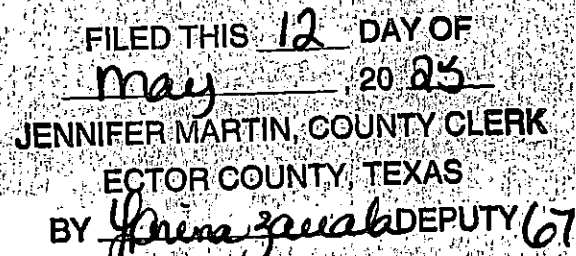 FILED THIS 12 DAY OF
May, 20 25
JENNIFER MARTIN, COUNTY CLERK
ECTOR COUNTY, TEXAS
BY Zavala DEPUTY (67